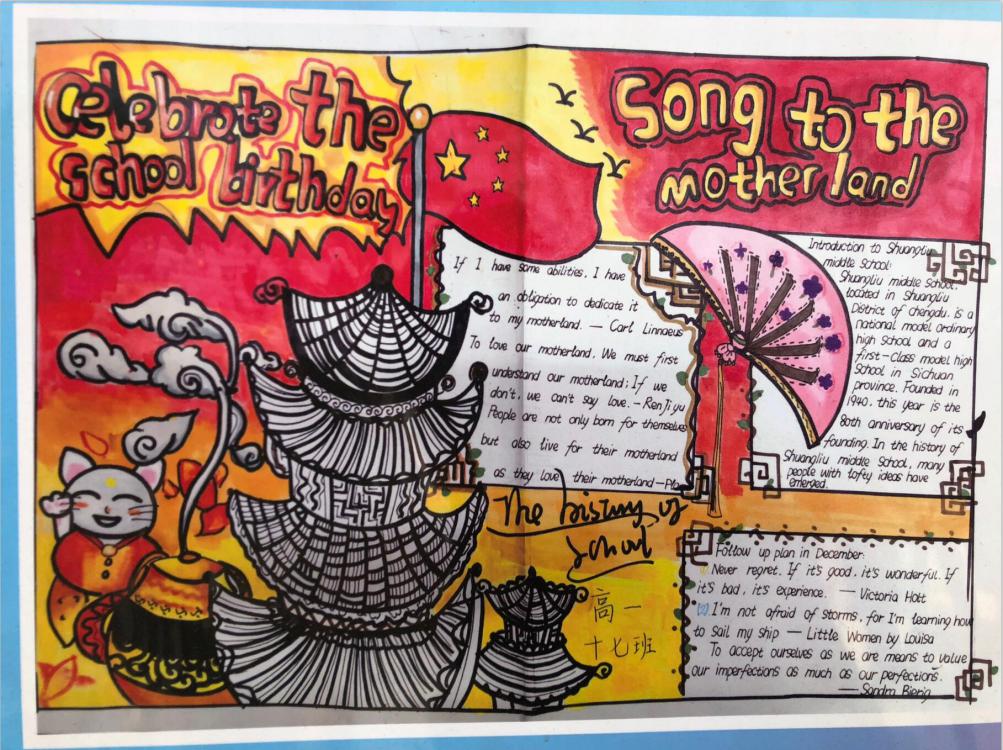 Celebrate the
school birthday
Song to the
motherland
If I have some abilities, I have
an obligation to dedicate it
to my motherland. — Carl Linnaeus
To love our motherland, We must first
understand our motherland; If we
don't, we can't say love. — Ren Ji yu
People are not only born for themselves
but also live for their motherland
as they love their motherland —Pla
The history of
School
高一
十七班
Introduction to Shuangliu
middle School:
Shuangliu middle School,
located in Shuangliu
District of chengdu, is a
national model ordinary
high school and a
first-Class model high
School in Sichuan
province. Founded in
1940, this year is the
80th anniversary of its
founding. In the history of
Shuangliu middle School, many
people with lofty ideas have
emerged.
Follow up plan in December:
Never regret. If it's good, it's wonderful. If
it's bad, it's experience. — Victoria Holt
I'm not afraid of storms, for I'm learning how
to sail my ship — Little Women by Louisa
To accept ourselves as we are means to value
our imperfections as much as our perfections.
— Sandra Bierig